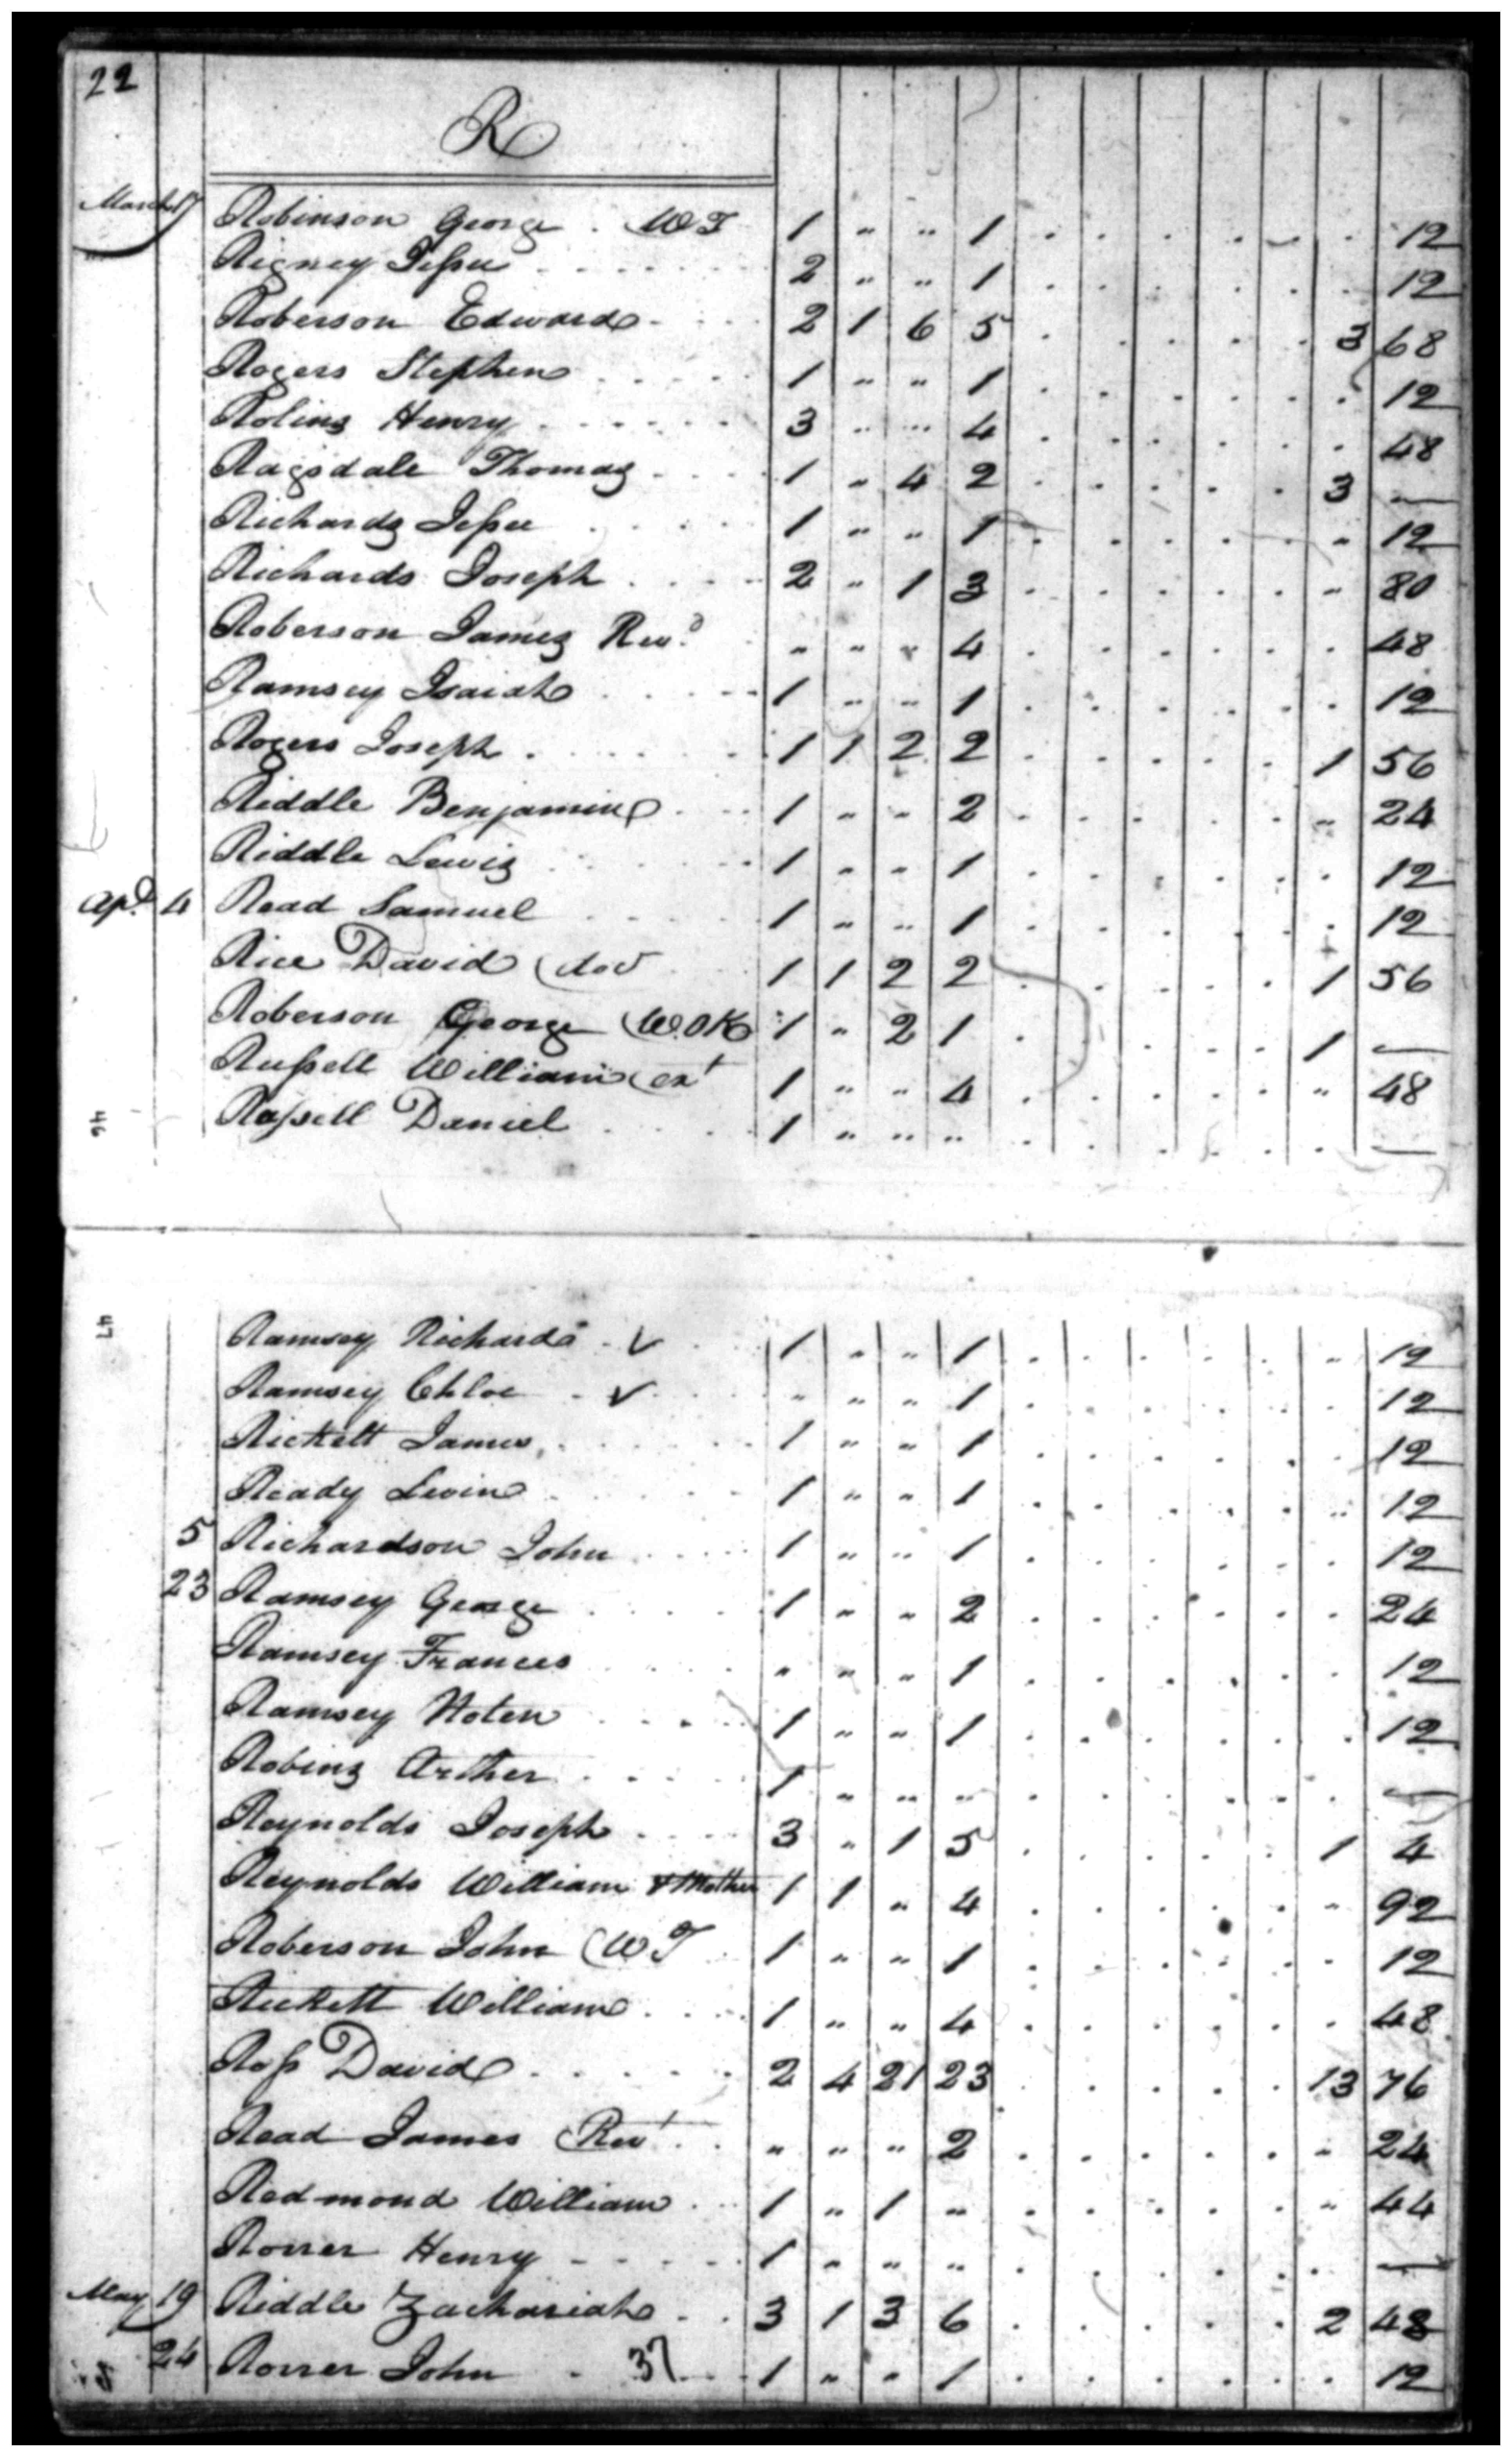 22
R
March 17 Robinson George . W T 1 " " 1 . . . . . . 12
Rigney Jesse 2 " " 1 . . . . . . 12
Roberson Edward 2 1 6 5 . . . . . 3 68
Rogers Stephen 1 " " 1 . . . . . . 12
Rolins Henry 3 " " 4 . . . . . . 48
Ragsdale Thomas 1 " 4 2 . . . . . 3 —
Richards Jesse 1 " " 1 . . . . . " 12
Richards Joseph 2 " 1 3 . . . . . " 80
Roberson James Revd " " " 4 . . . . . . 48
Ramsey Isaiah 1 " " 1 . . . . . . 12
Rogers Joseph 1 1 2 2 . . . . . 1 56
Riddle Benjamin 1 " " 2 . . . . . " 24
Riddle Lewis 1 " " 1 . . . . . . 12
Apl 4 Read Samuel 1 " " 1 . . . . . . 12
Rice David 1 1 2 2 . . . . . 1 56
Roberson George (W.O.K 1 " 2 1 . . . . . 1 —
Russell William (ext 1 " " 4 . . . . . " 48
46 Russell Daniel 1 " " " . . . . . . —
47 Ramsey Richard . V 1 " " 1 . . . . . " 12
Ramsey Chloe . V " " " 1 . . . . . . 12
Rickett James 1 " " 1 . . . . . . 12
Ready Levin 1 " " 1 . . . . . " 12
5 Richardson John 1 " " 1 . . . . . . 12
23 Ramsey George 1 " " 2 . . . . . . 24
Ramsey Frances " " " 1 . . . . . . 12
Ramsey Noten 1 " " 1 . . . . . . 12
Robins Arther 1 " " " . . . . . . —
Reynolds Joseph 3 " 1 5 . . . . . 1 4
Reynolds William & Mother 1 1 " 4 . . . . . " 92
Roberson John (W T 1 " " 1 . . . . . . 12
Rickett William 1 " " 4 . . . . . . 48
Ross David 2 4 21 23 . . . . . 13 76
Read James (Rev " " " 2 . . . . . " 24
Redmond William 1 " 1 " . . . . . " 44
Rorrer Henry 1 " " " . . . . . . —
May 19 Riddle Zachariah 3 1 3 6 . . . . . 2 48
24 Rorrer John . 37 1 " " 1 . . . . . . 12